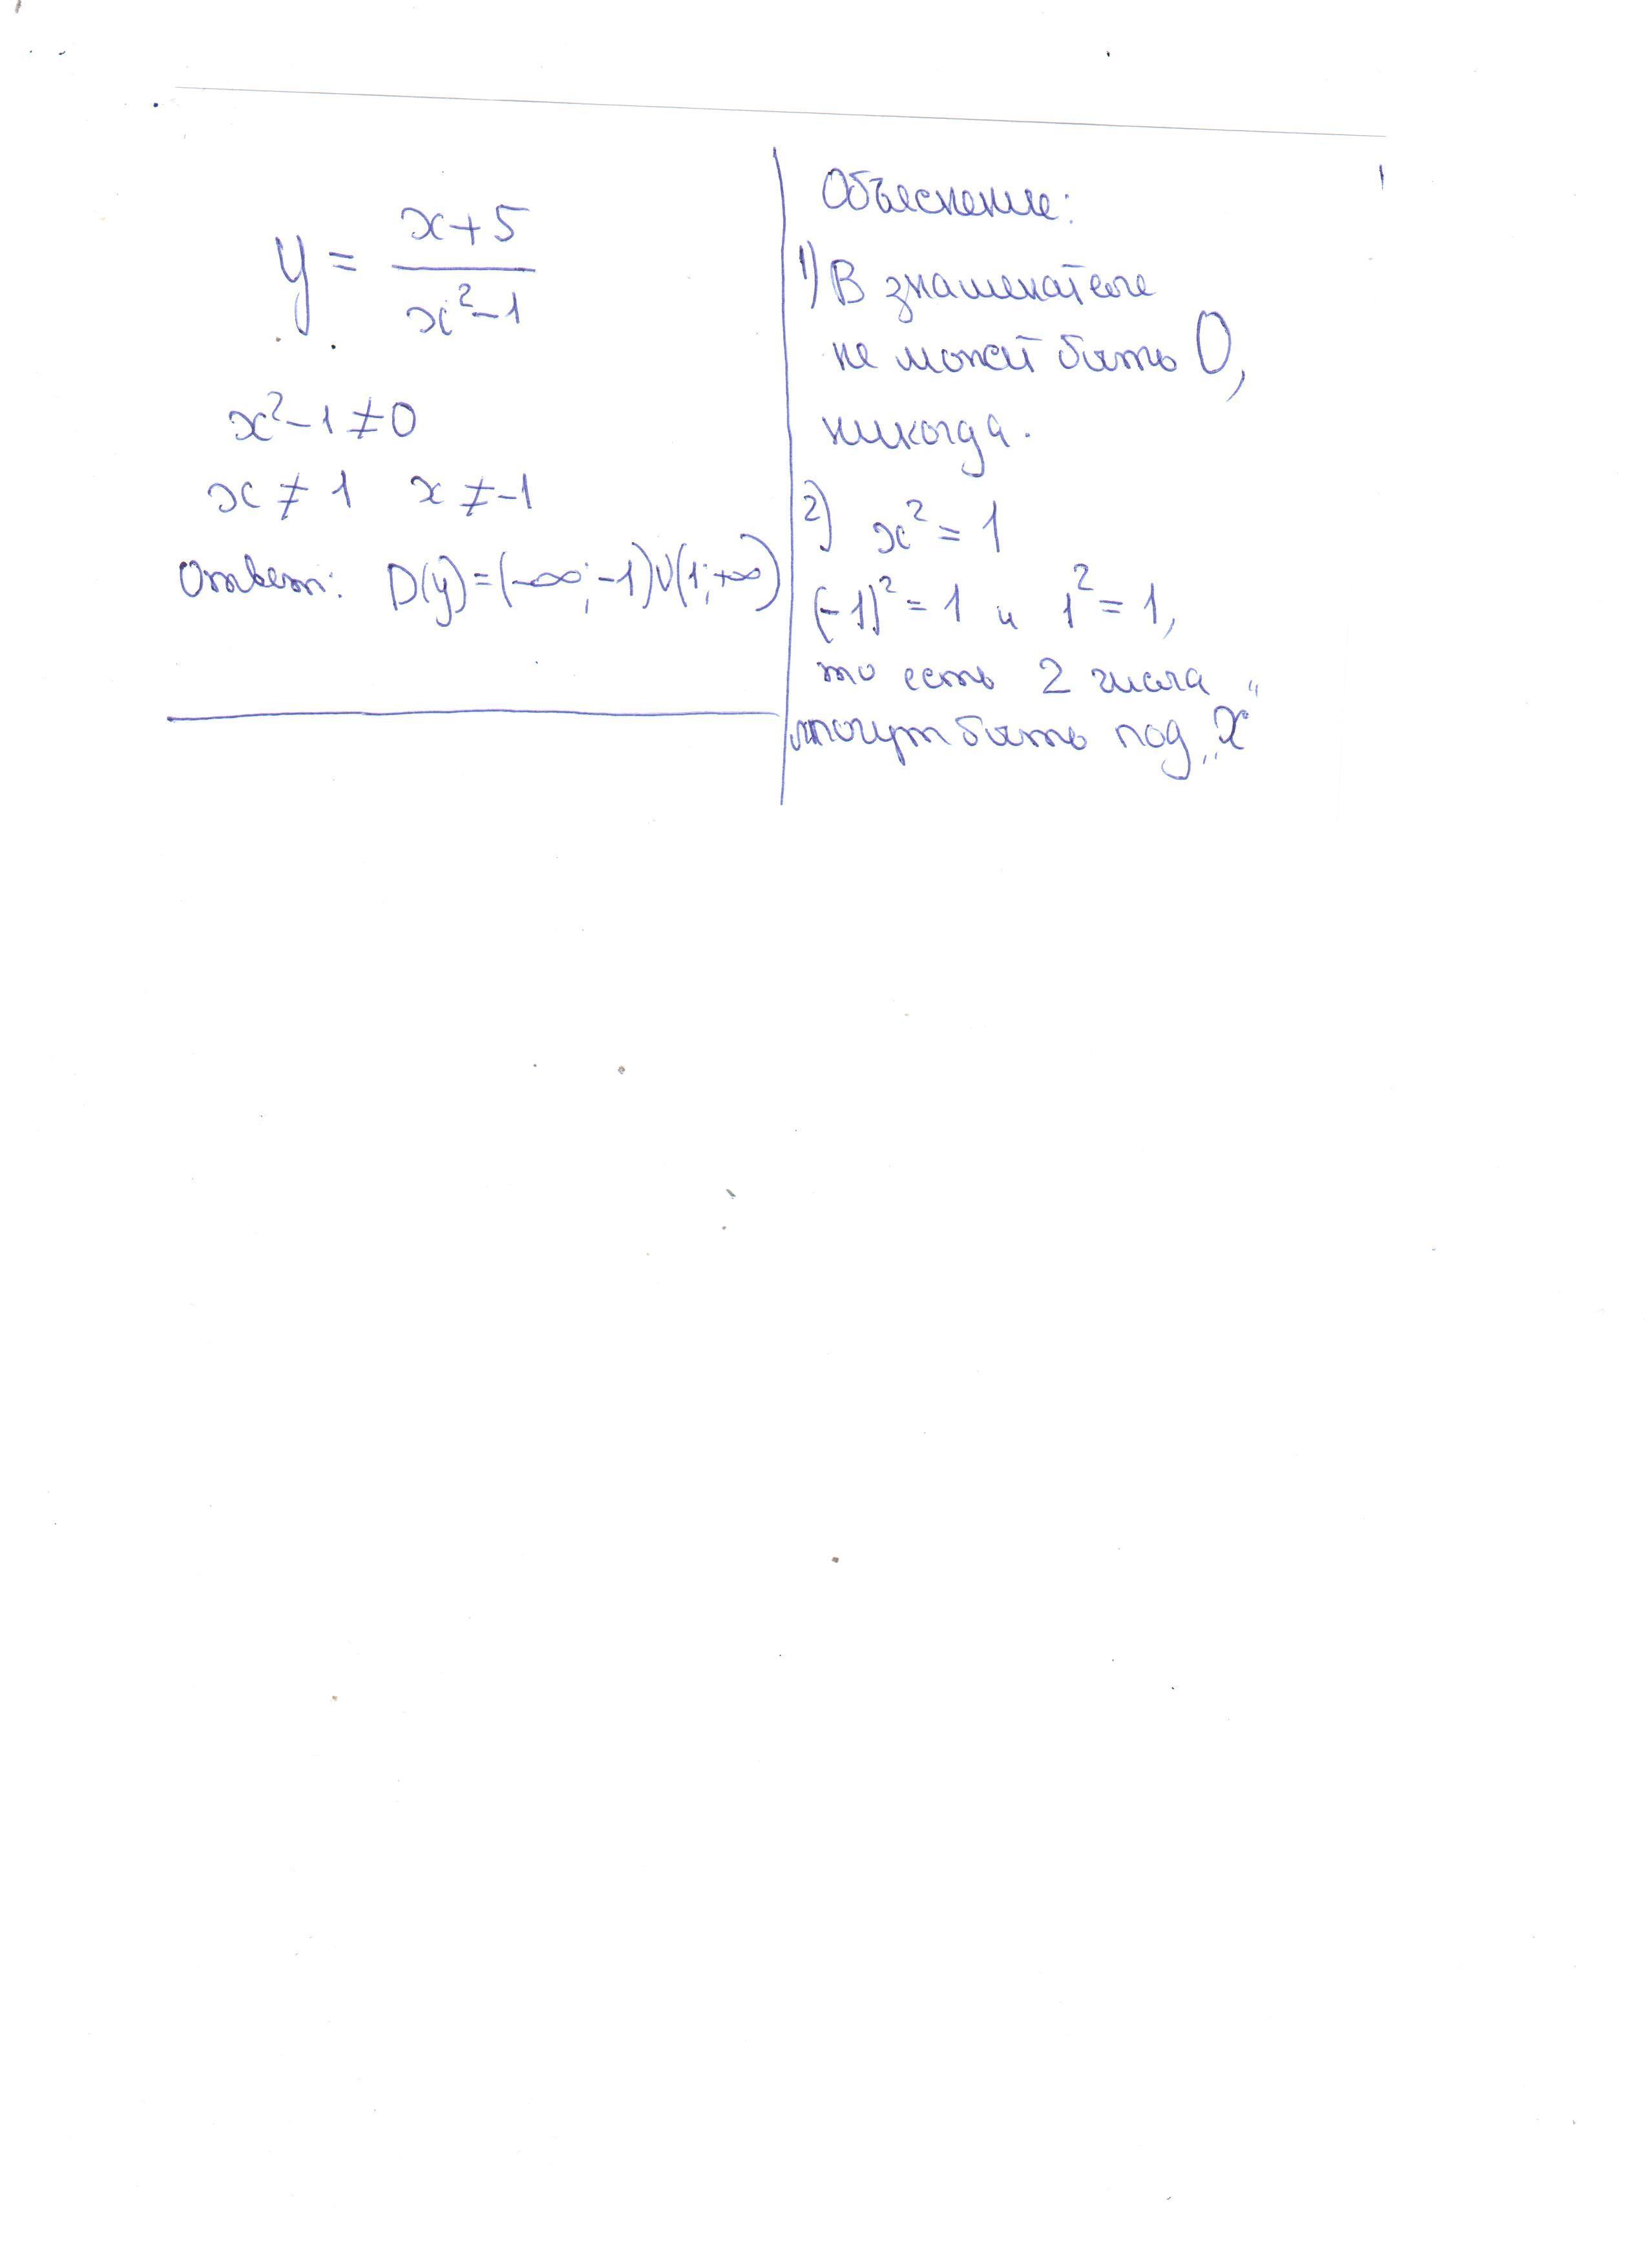 y = x+5 / x²-1
x²-1 ≠ 0
x ≠ 1 x ≠ -1
Ответ: D(y)=(-∞;-1)∪(1;+∞)
Объяснение:
1) В знаменателе
не может быть 0,
никогда.
2) x² = 1
(-1)² = 1 и 1² = 1,
то есть 2 числа
могут быть под „x“